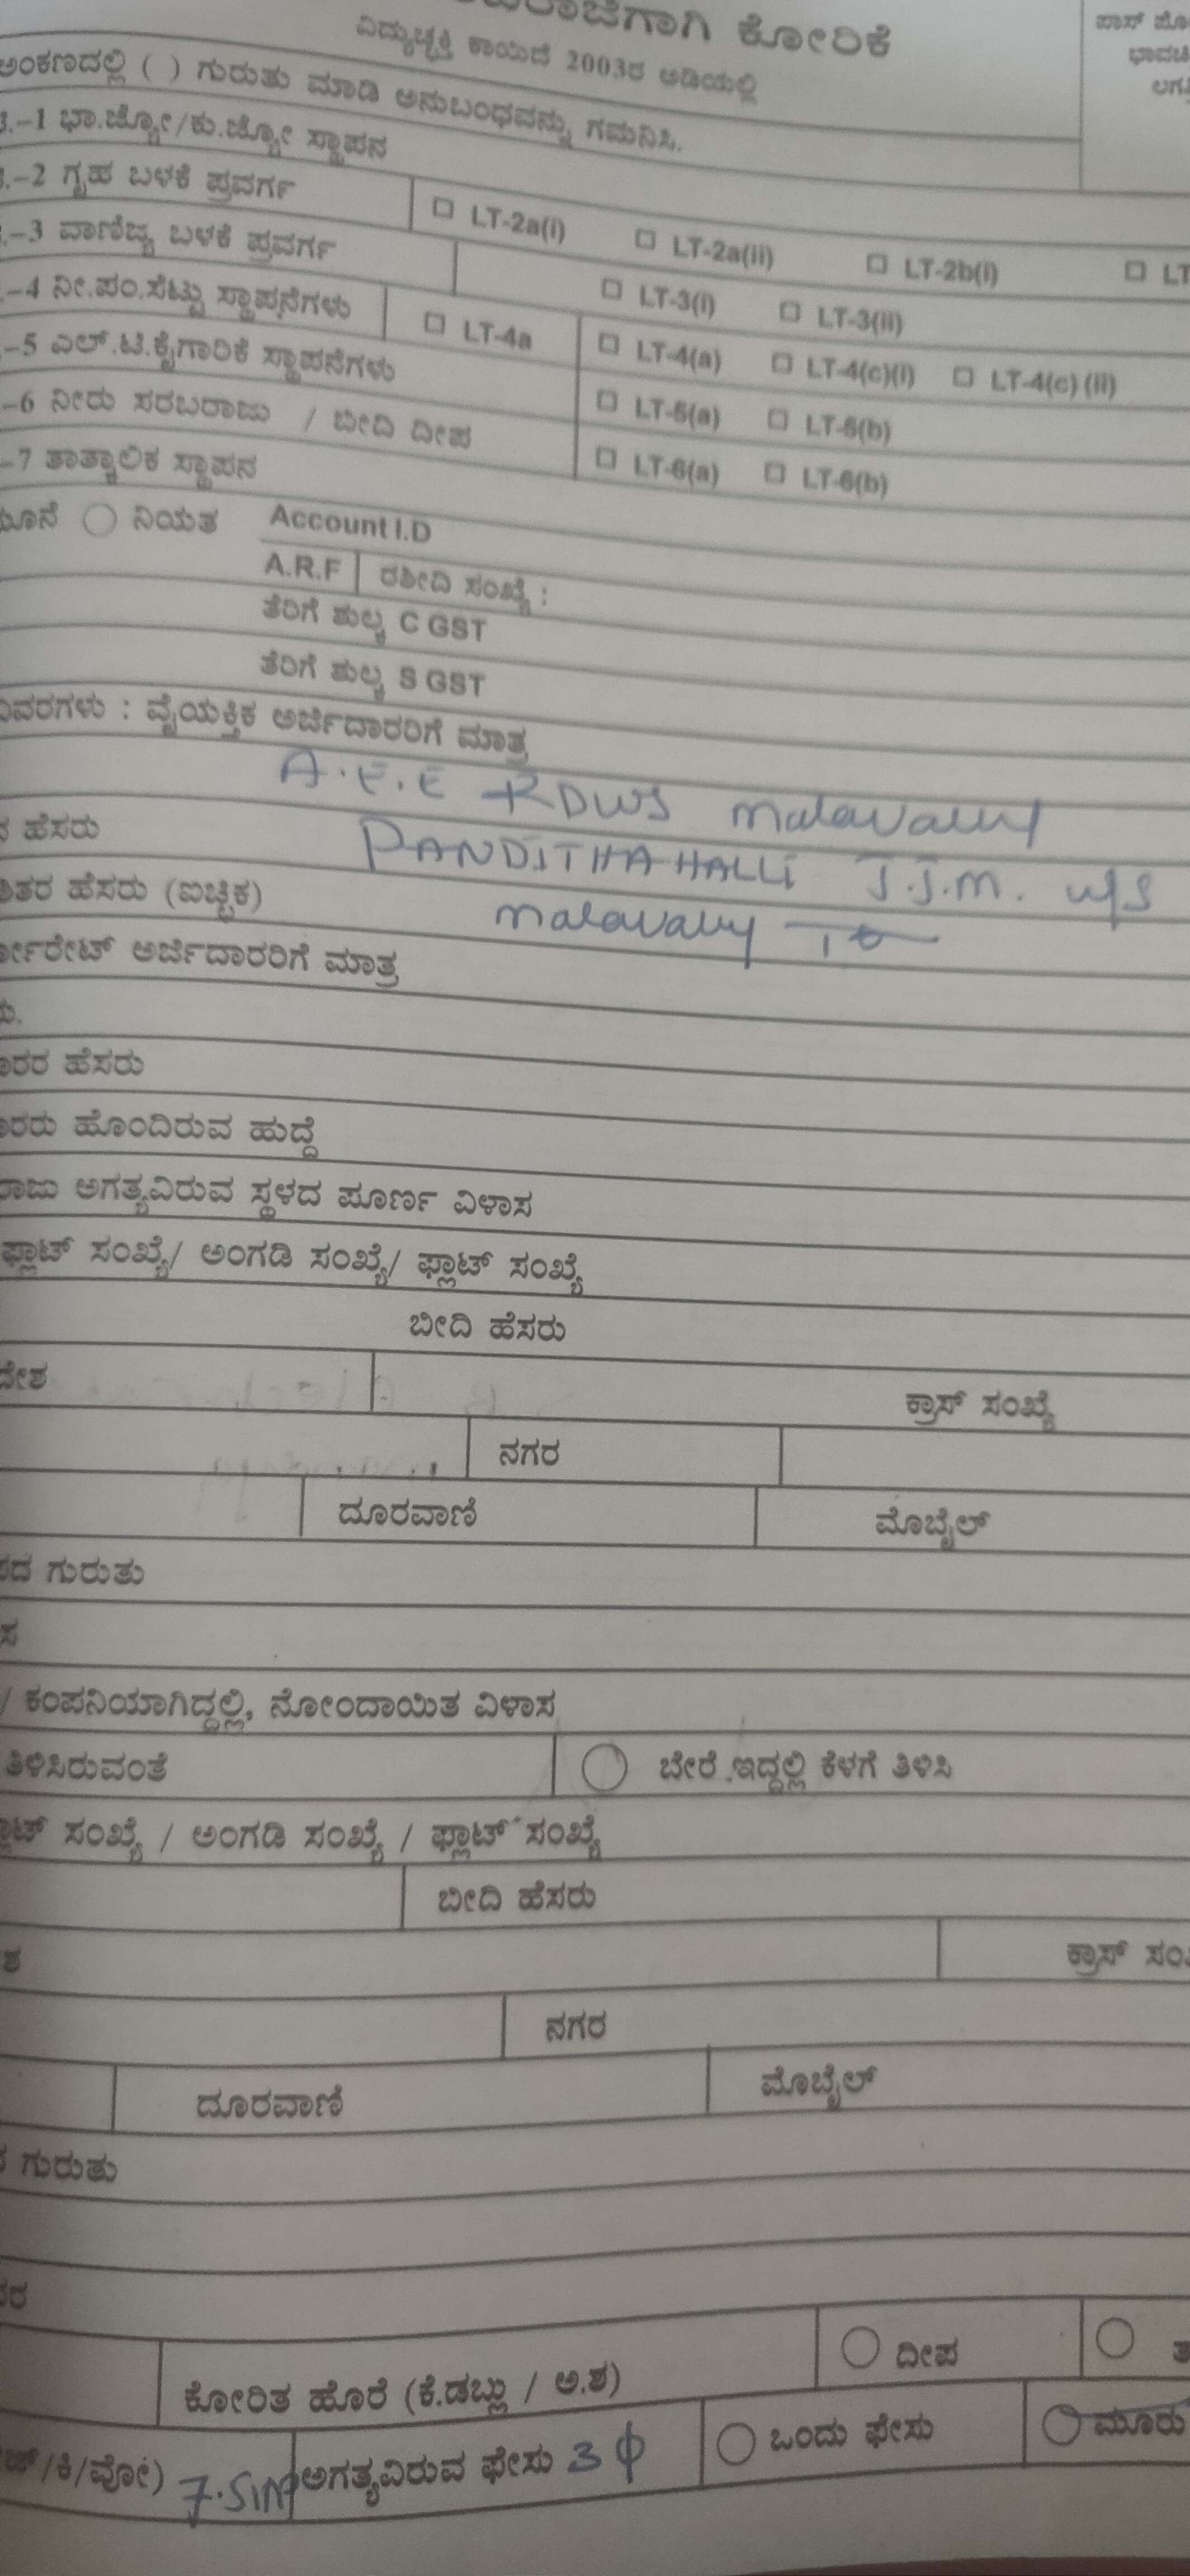 ಕೋರಿಕೆ
ವಿದ್ಯುಚ್ಛಕ್ತಿ ಕಾಯಿದೆ 2003ರ ಅಡಿಯಲ್ಲಿ
ಅಂಕಣದಲ್ಲಿ ( ) ಗುರುತು ಮಾಡಿ ಅನುಬಂಧವನ್ನು ಗಮನಿಸಿ.
-1 ಭಾ.ಜ್ಯೋ/ಕು.ಜ್ಯೋ ಸ್ಥಾಪನ
-2 ಗೃಹ ಬಳಕೆ ಪ್ರವರ್ಗ LT-2a(i) LT-2a(ii) LT-2b(i) LT
-3 ವಾಣಿಜ್ಯ ಬಳಕೆ ಪ್ರವರ್ಗ LT-3(i) LT-3(ii)
-4 ನೀ.ಪಂ.ಸೆಟ್ಟು ಸ್ಥಾಪನೆಗಳು LT-4a LT-4(a) LT-4(c)(i) LT-4(c) (ii)
-5 ಎಲ್.ಟಿ.ಕೈಗಾರಿಕೆ ಸ್ಥಾಪನೆಗಳು LT-5(a) LT-5(b)
-6 ನೀರು ಸರಬರಾಜು / ಬೀದಿ ದೀಪ LT-6(a) LT-6(b)
-7 ತಾತ್ಕಾಲಿಕ ಸ್ಥಾಪನ
ನಿಯತ Account I.D
A.R.F ರಶೀದಿ ಸಂಖ್ಯೆ :
ತೆರಿಗೆ ಶುಲ್ಕ C GST
ತೆರಿಗೆ ಶುಲ್ಕ S GST
ವಿವರಗಳು : ವೈಯಕ್ತಿಕ ಅರ್ಜಿದಾರರಿಗೆ ಮಾತ್ರ
A.E.E RDWS Malavally
ಹೆಸರು PANDITHAHALLi J.J.M. W/S
ಹೆಸರು (ಐಚ್ಛಿಕ) Malavally
ಅರ್ಜಿದಾರರಿಗೆ ಮಾತ್ರ
ಹೆಸರು
ಹೊಂದಿರುವ ಹುದ್ದೆ
ಅಗತ್ಯವಿರುವ ಸ್ಥಳದ ಪೂರ್ಣ ವಿಳಾಸ
ಫ್ಲಾಟ್ ಸಂಖ್ಯೆ/ ಅಂಗಡಿ ಸಂಖ್ಯೆ/ ಫ್ಲಾಟ್ ಸಂಖ್ಯೆ
ಬೀದಿ ಹೆಸರು
ಕ್ರಾಸ್ ಸಂಖ್ಯೆ
ನಗರ
ದೂರವಾಣಿ ಮೊಬೈಲ್
ಗುರುತು
/ ಕಂಪನಿಯಾಗಿದ್ದಲ್ಲಿ, ನೋಂದಾಯಿತ ವಿಳಾಸ
ತಿಳಿಸಿರುವಂತೆ ಬೇರೆ ಇದ್ದಲ್ಲಿ ಕೆಳಗೆ ತಿಳಿಸಿ
ಸಂಖ್ಯೆ / ಅಂಗಡಿ ಸಂಖ್ಯೆ / ಫ್ಲಾಟ್ ಸಂಖ್ಯೆ
ಬೀದಿ ಹೆಸರು
ಕ್ರಾಸ್
ನಗರ
ದೂರವಾಣಿ ಮೊಬೈಲ್
ಗುರುತು
ಕೋರಿತ ಹೊರೆ (ಕೆ.ಡಬ್ಲು / ಅ.ಶ) ದೀಪ
ಅಗತ್ಯವಿರುವ ಫೇಸು 3 ϕ ಒಂದು ಫೇಸು ಮೂರು